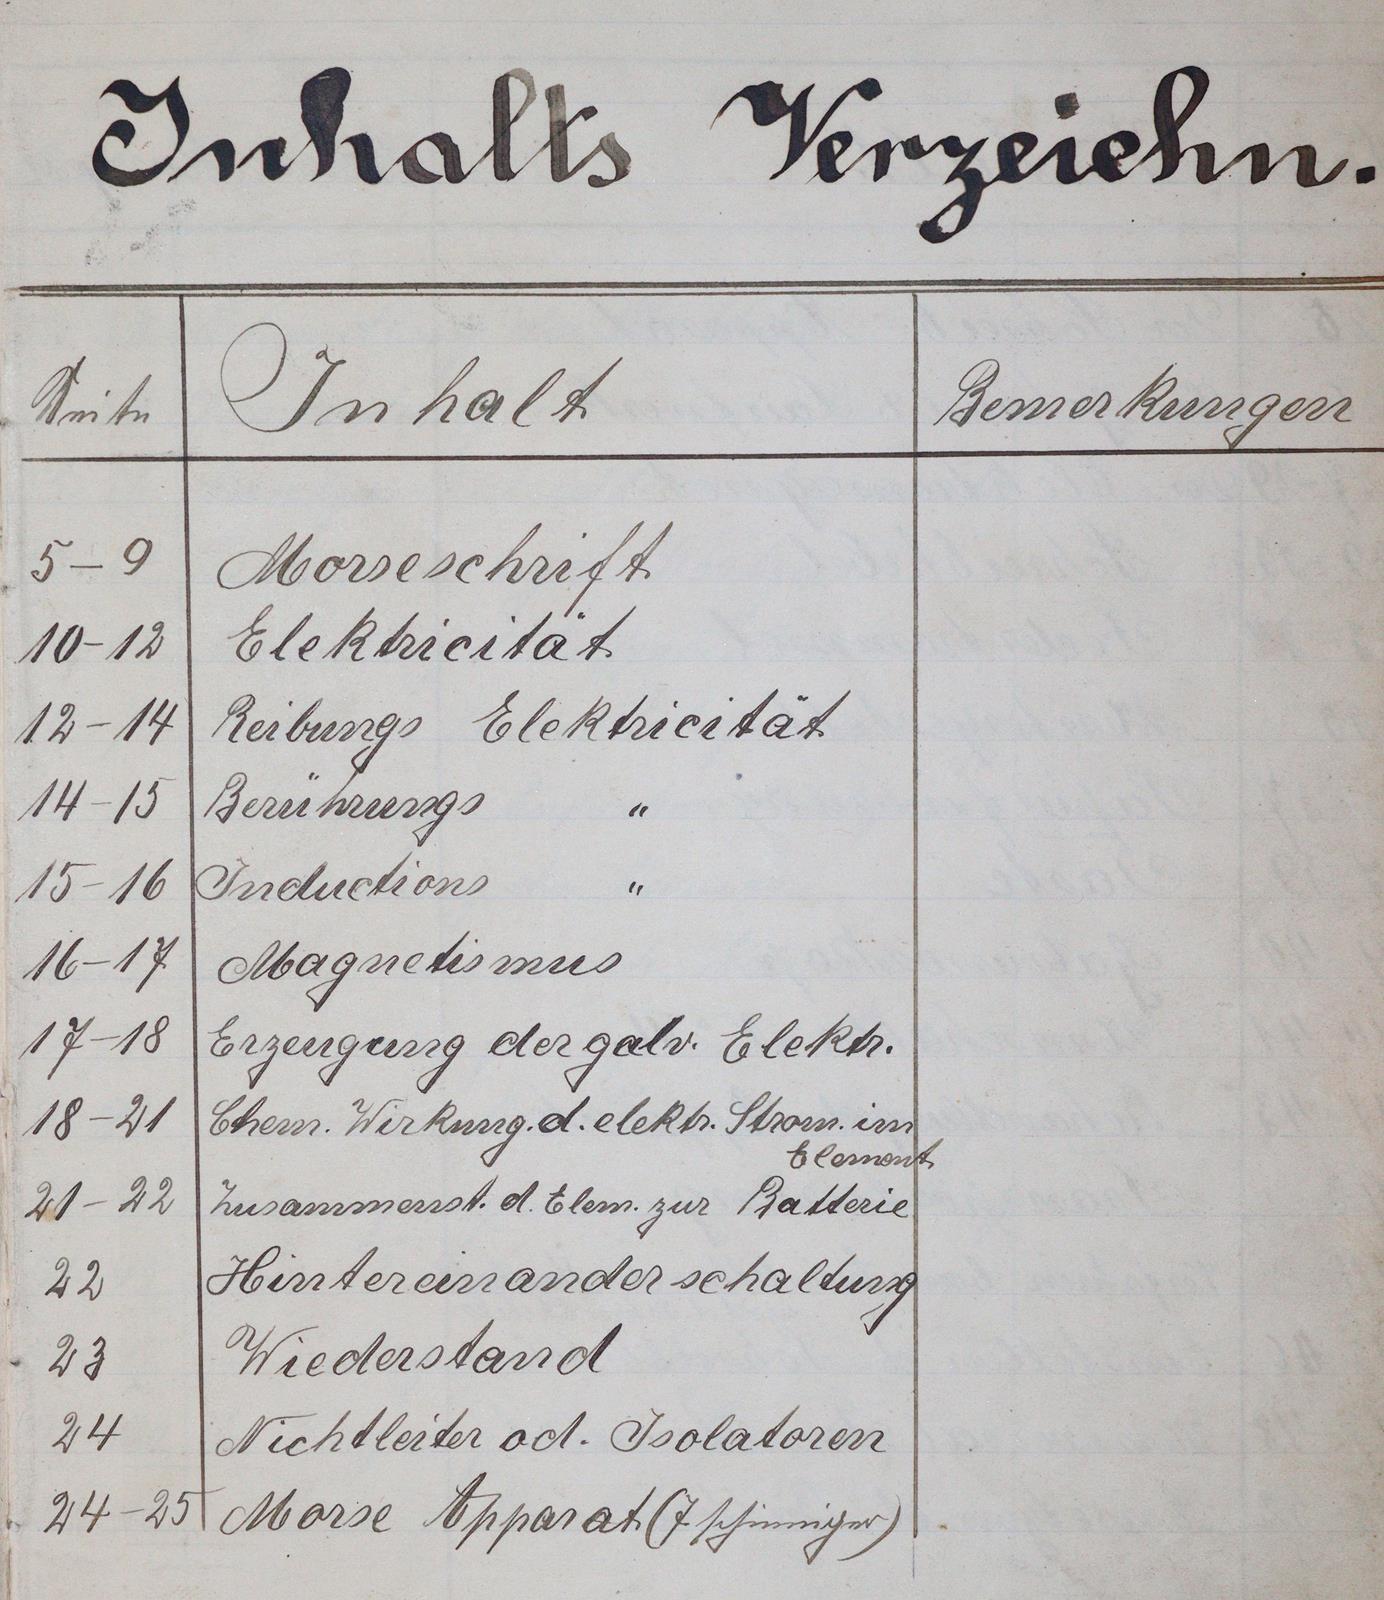 Inhalts Verzeichn.
Seite Inhalt Bemerkungen
5-9 Morseschrift
10-12 Elektricität
12-14 Reibungs Elektricität
14-15 Berührungs "
15-16 Inductions "
16-17 Magnetismus
17-18 Erzeugung der galv. Elektr.
18-21 Chem. Wirkung. d. elektr. Strom. im
Element
21-22 Zusammenst. d. Elem. zur Batterie
22 Hintereinanderschaltung
23 Wiederstand
24 Nichtleiter od. Isolatoren
24-25 Morse Apparat